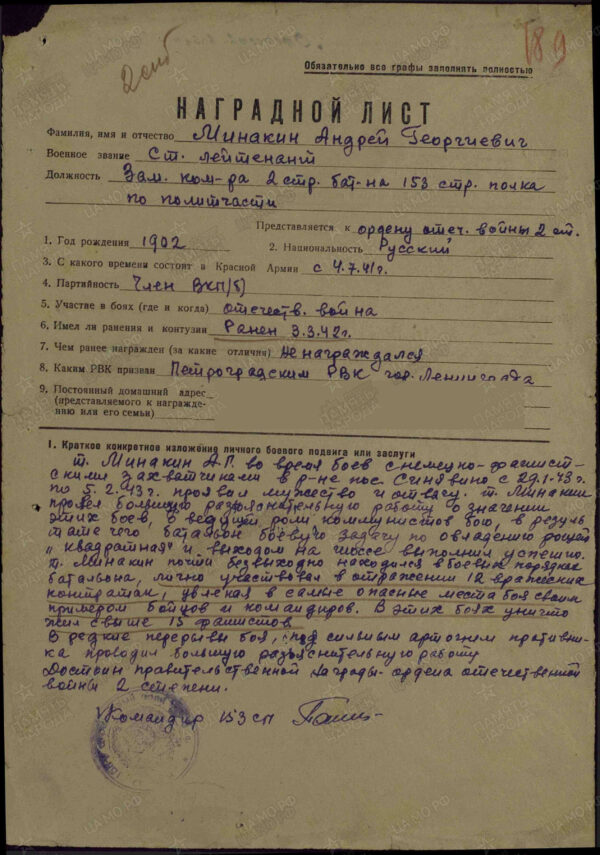 2 сиб
189
Обязательно все графы заполнять полностью
НАГРАДНОЙ ЛИСТ
Фамилия, имя и отчество Минакин Андрей Георгиевич
Военное звание Ст. лейтенант
Должность Зам. ком-ра 2 стр. бат-на 153 стр. полка
по политчасти
Представляется к ордену отеч. войны 2 ст.
1. Год рождения 1902 2. Национальность Русский
3. С какого времени состоит в Красной Армии с 4.7.41г.
4. Партийность Член ВКП/б)
5. Участие в боях (где и когда) отечеств. война
6. Имел ли ранения и контузии Ранен 3.3.42г.
7. Чем ранее награжден (за какие отличия) Не награждался
8. Каким РВК призван Петроградским РВК гор. Ленинграда
9. Постоянный домашний адрес
(представляемого к награжде-
нию или его семьи)
I. Краткое конкретное изложение личного боевого подвига или заслуги
т. Минакин А.Г. во время боев с немецко-фашист-
скими захватчиками в р-не пос. Синявино с 29.1.43г.
по 5.2.43г. проявил мужество и отвагу. т. Минакин
провел большую разъяснительную работу о значении
этих боев, о ведущей роли коммунистов в бою, в резуль
тате чего батальон боевую задачу по овладению рощей
"квадратная" и выходом на шоссе выполнил успешно.
т. Минакин почти безвыходно находился в боевых порядках
батальона, лично участвовал в отражении 12 вражеских
контратак, увлекая в самые опасные места боя своим
примером бойцов и командиров. В этих боях уничто
жил свыше 15 фашистов.
В редкие перерывы боя, под сильным артогнем противни-
ка проводил большую разъяснительную работу
Достоин правительственной награды - ордена отечественной
войны 2 степени.
Командир 153 сп
ЦАМО.РФ